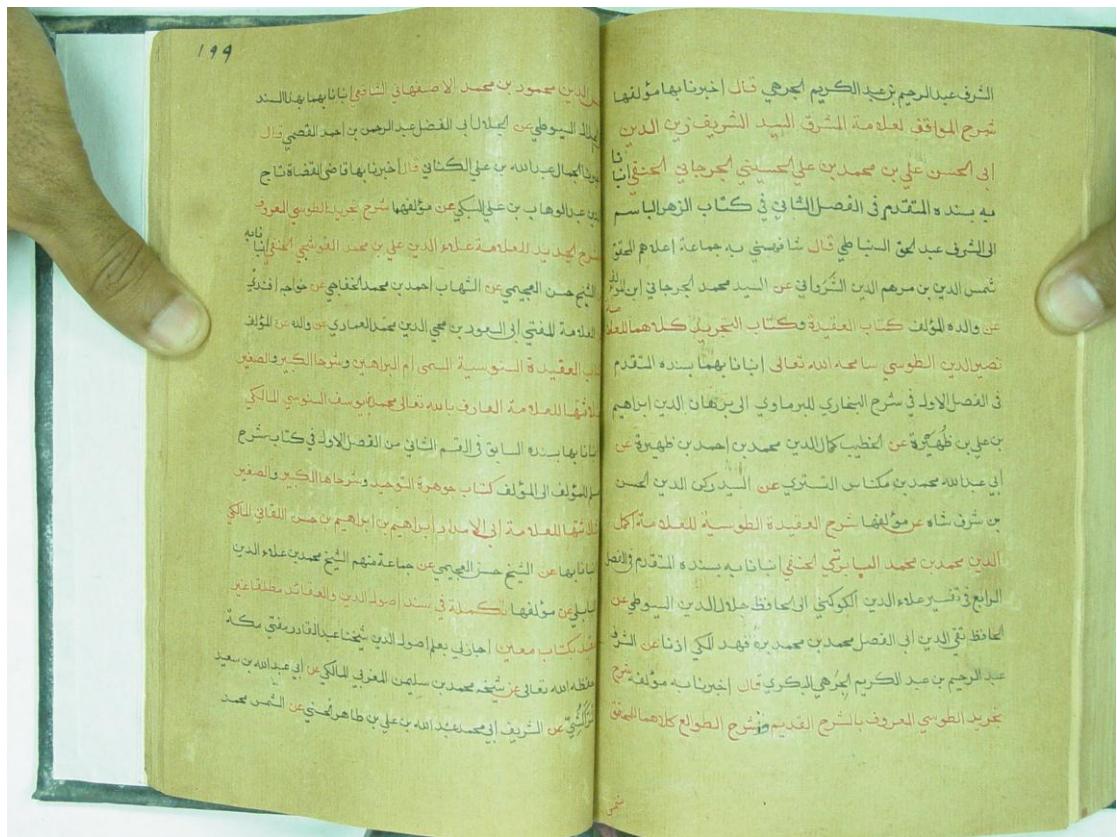 الشرف عبد الرحيم بن عبد الكريم الجرهي قال اخبرنا بها مؤلفها
شرح المواقف لعلامة المشرق السيد الشريف زين الدين
ابي الحسن علي بن محمد بن علي الحسيني الجرجاني الحنفي انبانا
به بسنده المتقدم في الفصل الثاني في كتاب الزهر الباسم
الى الشرف عبد الحق السنباطي قال شافهني به جماعة اعلاهم المحقق
شمس الدين بن مرهم الدين الشرواني عن السيد محمد الجرجاني ابن المؤلف
عن والده المؤلف كتاب العقيدة وكتاب التجريد كلاهما للعلامة
نصير الدين الطوسي سامحه الله تعالى انبانا بهما بسنده المتقدم
في الفصل الاول في شرح البخاري للبرماوي الى برهان الدين ابراهيم
بن علي بن ظهيرة عن الخطيب كمال الدين محمد بن احمد بن ظهيرة عن
أبي عبد الله محمد بن مكناس التستري عن السيد ركن الدين الحسن
بن شرف شاه عن مؤلفها شرح العقيدة الطوسية للعلامة اكمل
الدين محمد بن محمد البابرتي الحنفي انبانا به بسنده المتقدم في الفصل
الرابع في تفسير علاء الدين الكوكني الى الحافظ جلال الدين السيوطي عن
الحافظ تقي الدين ابي الفضل محمد بن محمد بن فهد المكي اذنا عن الشرف
عبد الرحيم بن عبد الكريم الجرهي البكري قال اخبرنا به مؤلفه شرح
تجريد الطوسي المعروف بالشرح القديم وشرح الطوالع كلاهما للمحقق
شمس
١٩٩
الدين محمود بن محمد الاصفهاني الشافعي انبانا بهما بهذا السند
السيوطي عن الجلال ابي الفضل عبد الرحمن بن احمد القمصي قال
الجمال عبد الله بن علي الكناني قال اخبرنا بها قاضي القضاة تاج
عبد الوهاب بن علي السبكي عن مؤلفهما شرح تجريد الطوسي المعروف
الجديد للعلامة علاء الدين علي بن محمد القوشجي الحنفي انبانا به
الشيخ حسن العجيمي عن الشهاب احمد بن محمد الخفاجي عن خواجه افندي
العلامة المفتي ابي السعود بن محيي الدين محمد العمادي عن والده عن المؤلف
العقيدة السنوسية المسمى ام البراهين وشرحا الكبير والصغير
للعلامة العارف بالله تعالى محمد بن يوسف السنوسي المالكي
بها بسنده السابق في القسم الثاني من الفصل الاول في كتاب شرح
للمؤلف الى المؤلف كتاب جوهرة التوحيد وشرحاها الكبير والصغير
للعلامة ابي الامداد ابراهيم بن ابراهيم بن حسن اللقاني المالكي
انبانا بها عن الشيخ حسن العجيمي عن جماعة منهم الشيخ محمد بن علاء الدين
البابلي عن مؤلفها تكملة في سند اصول الدين والعقائد مطلقا غير
بكتاب معين اجازني بعلم اصول الدين شيخنا عبد القادر مفتي مكة
حفظه الله تعالى عن شيخه محمد بن سليمن المغربي المالكي عن أبي عبد الله بن سعيد
عن الشريف ابي محمد عبد الله بن علي بن طاهر الحسني عن الشمس محمد